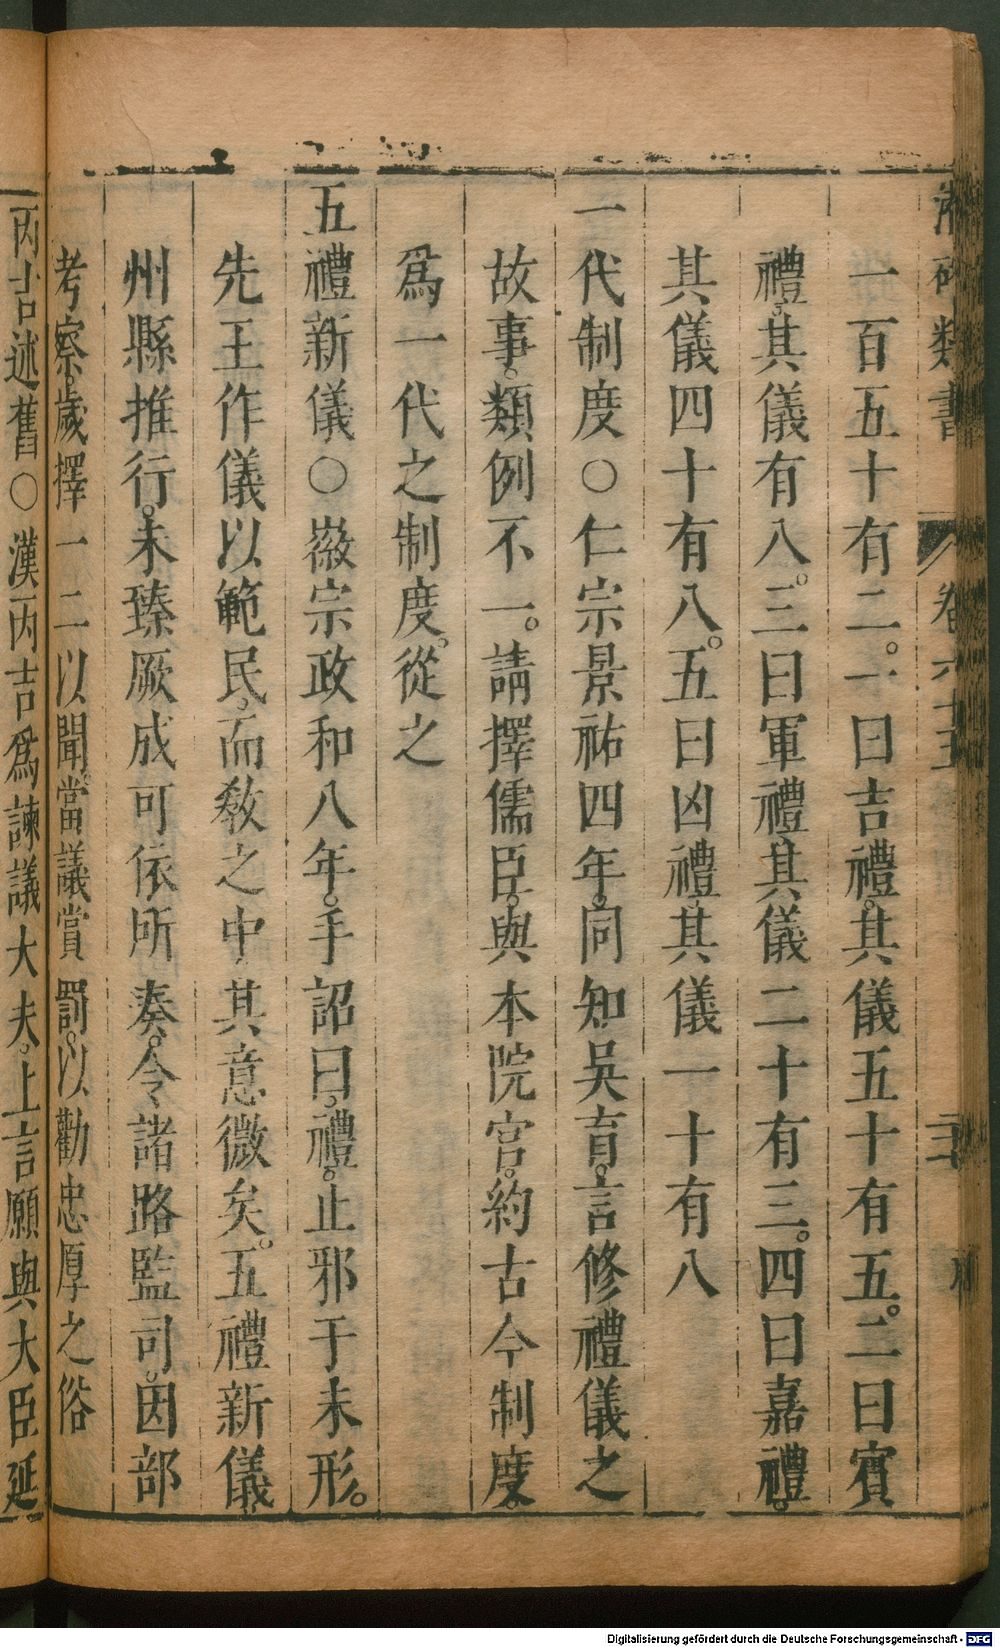 類書
卷六十五
一百五十有二。一曰吉禮。其儀五十有五。二曰賓
禮。其儀有八。三曰軍禮。其儀二十有三。四曰嘉禮。
其儀四十有八。五曰凶禮。其儀一十有八
一代制度○仁宗景祐四年。同知吳育。言修禮儀之
故事。類例不一。請擇儒臣。與本院官。約古今制度。
爲一代之制度。從之
五禮新儀○徽宗政和八年。手詔曰。禮。止邪于未形。
先王作儀以範民。而敎之中其意微矣。五禮新儀。
州縣推行。未臻厥成可依所奏。令諸路監司。因部
考察。歲擇一二以聞。當議賞罰。以勸忠厚之俗
丙吉述舊○漢丙吉爲諫議大夫。上言願與大臣延
Digitalisierung gefördert durch die Deutsche Forschungsgemeinschaft - DFG